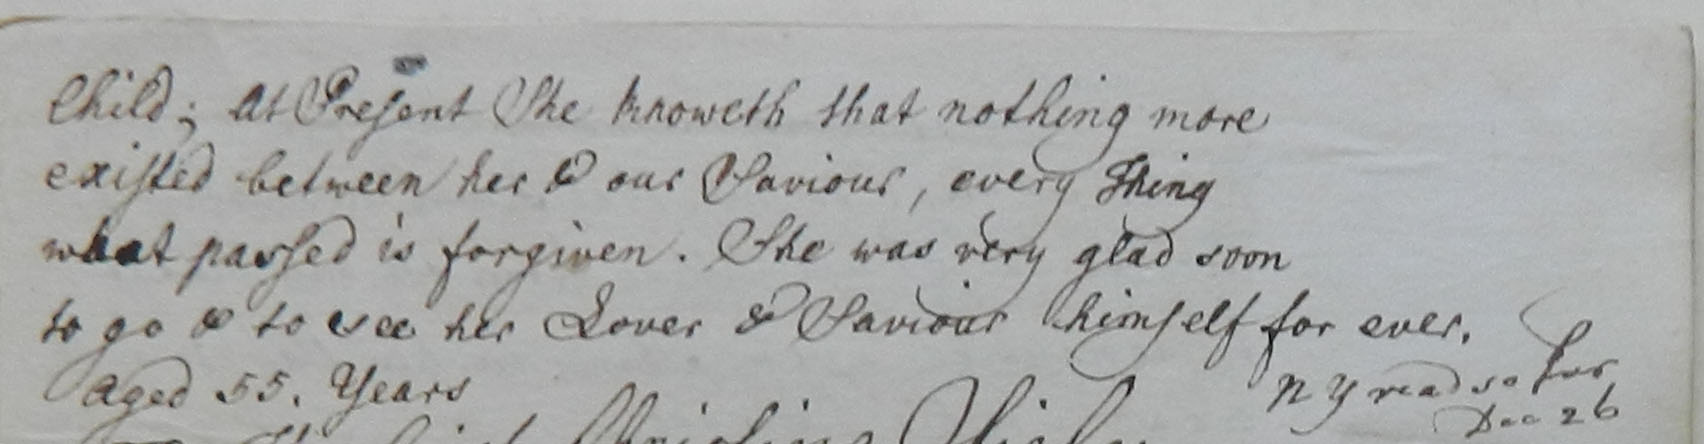 Child; At Present She knoweth that nothing more
existed between her & our Saviour, every Thing
what passed is forgiven. She was very glad soon
to go & to see her Lover & Saviour himself for ever.
aged 55. Years
N Y read so far
Dec 26